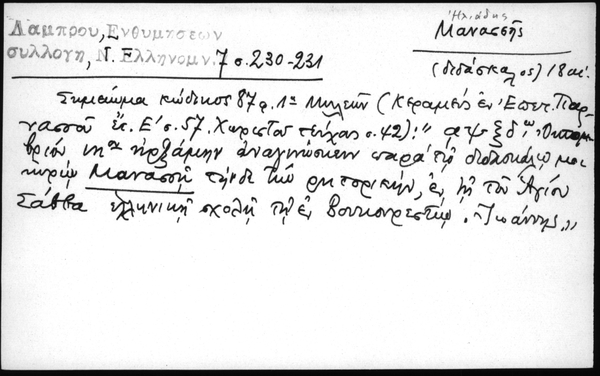 Λάμπρου, Ενθυμησεων
συλλογη, Ν. Ελληνομν. 7 σ. 230-231
Ἠλιάδης
Μανασσῆς
(διδάσκαλος) 18 αἰ.
Σημείωμα κώδικος 87 φ. 1α Μηλεῶν (Κεραμεὺς ἐν Ἐπετ. Παρ-
νασσοῦ ἔτ. Ε' σ. 57. Χωριστοῦ τεύχους σ. 42): "αψξδ'ω Ὀκτωμ-
βρίου ἠρξάμην ἀναγινώσκειν παρὰ τῷ διδασκάλῳ μοι
κυρίῳ Μανασσῇ τήνδε τὴν ρητορικήν, ἐν τῇ τοῦ Ἁγίου
Σάββα ἑλληνικῇ σχολῇ τῇ ἐν Βουκουρεστίῳ. Ἰωάννης"